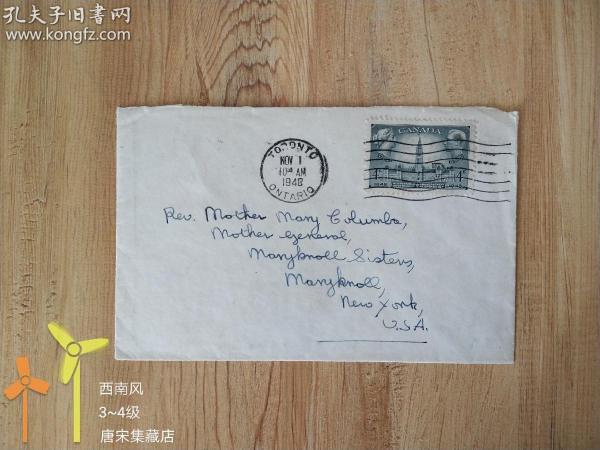 孔夫子旧书网
www.kongfz.com
CANADA
TORONTO
NOV 1
AM
1948
ONTARIO
1848
1948
Rev. Mother Mary Columba,
Mother General,
Maryknoll Sisters,
Maryknoll,
New York,
U.S.A.
西南风
3~4级
唐宋集藏店